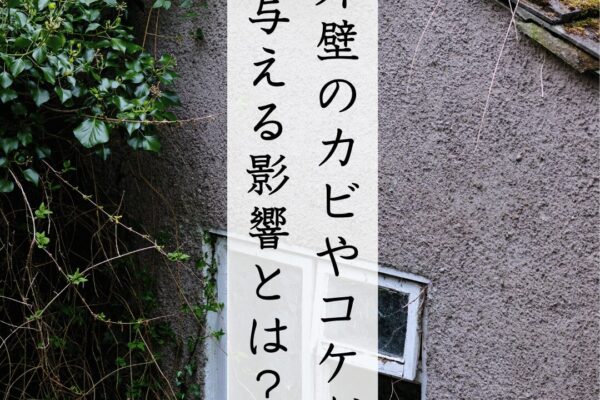 壁のカビやコケ
与える影響とは?